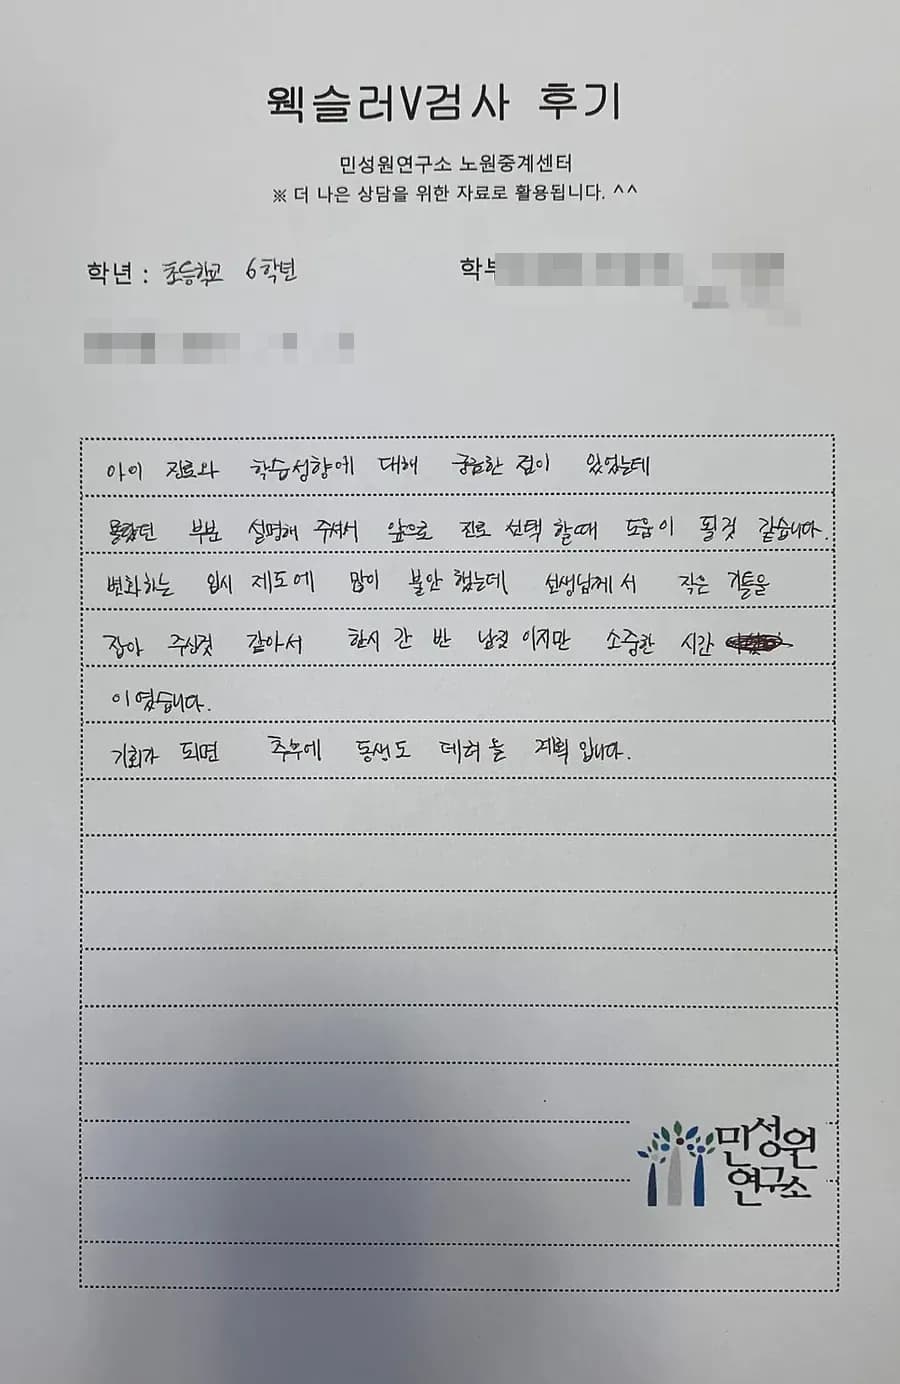 웩슬러V검사 후기
민성원연구소 노원중계센터
※ 더 나은 상담을 위한 자료로 활용됩니다. ^^
학년 : 초등학교 6학년
학부
아이 진로와 학습성향에 대해 궁금한 점이 있었는데
몰랐던 부분 설명해 주셔서 앞으로 진로 선택 할때 도움이 될것 같습니다.
변화하는 입시 제도에 많이 불안 했는데 선생님께서 작은 기틀을
잡아 주신것 같아서 한시간 반 남짓 이지만 소중한 시간
이였습니다.
기회가 되면 추후에 동생도 데려 올 계획 입니다.
민성원
연구소